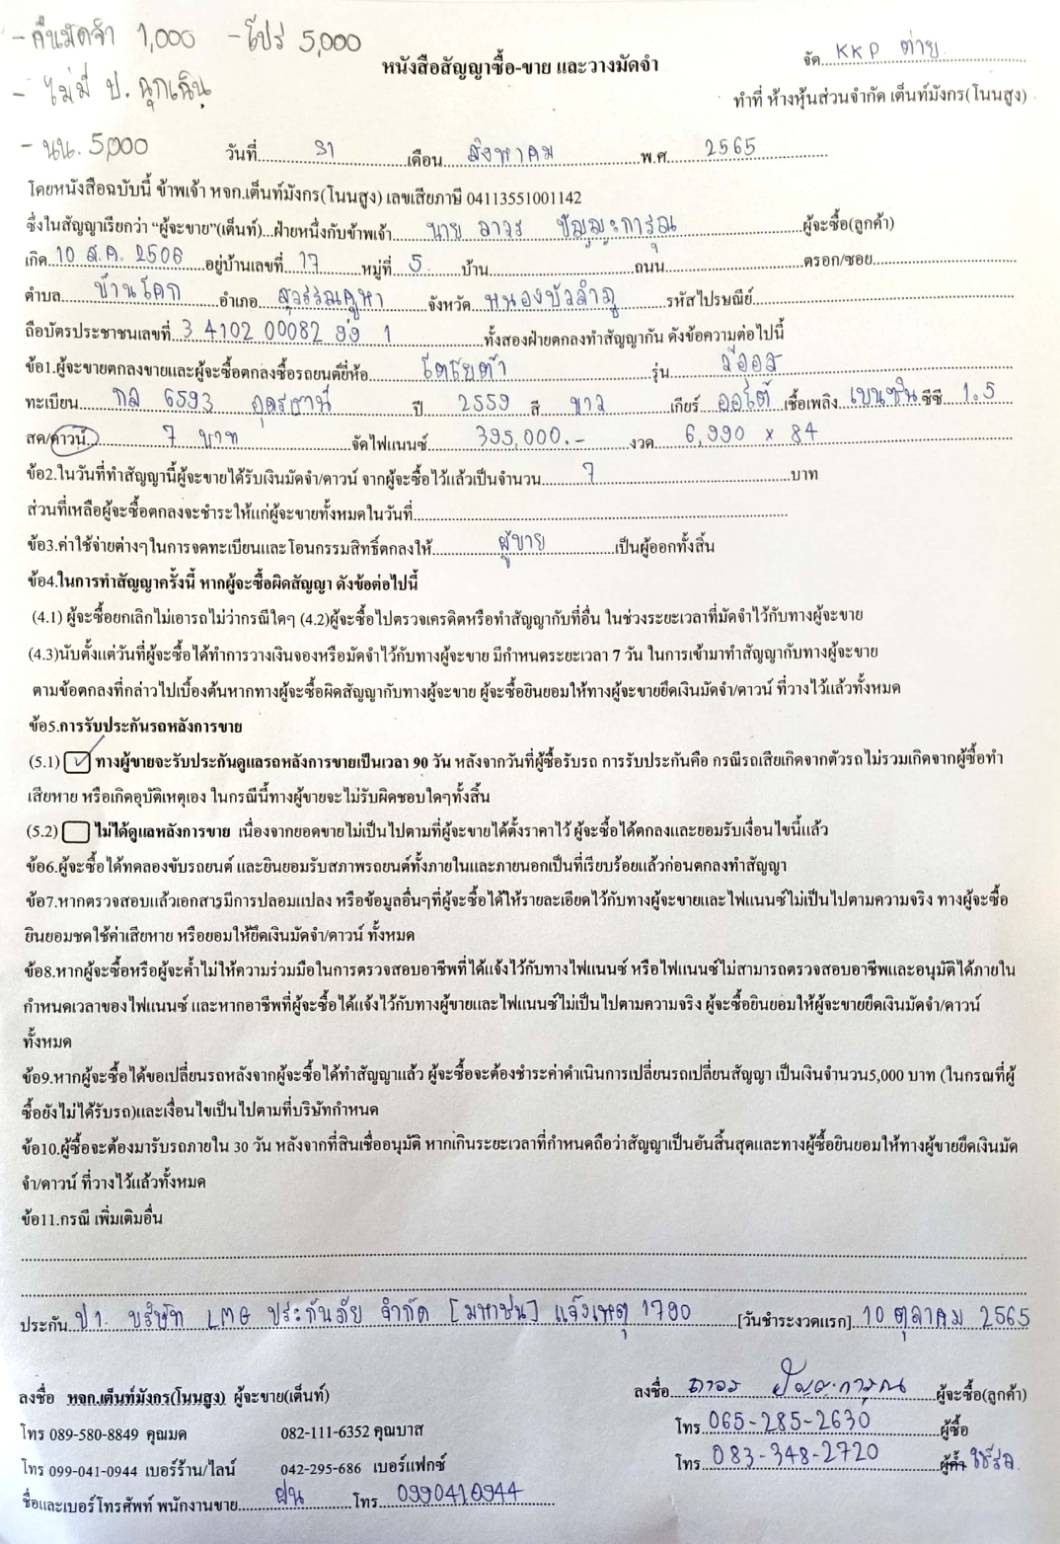 - คืนมัดจำ 1,000 - โปร 5,000
หนังสือสัญญาซื้อ-ขาย และวางมัดจำ
จัด...KKP ต่าย
- ไม่มี ป. ฉุกเฉิน
ทำที่ ห้างหุ้นส่วนจำกัด เต็นท์มังกร(โนนสูง)
- นน. 5,000
วันที่...31...เดือน...สิงหาคม...พ.ศ...2565
โดยหนังสือฉบับนี้ ข้าพเจ้า หจก.เต็นท์มังกร(โนนสูง) เลขเสียภาษี 04113551001142
ซึ่งในสัญญาเรียกว่า “ผู้จะขาย”(เต็นท์)...ฝ่ายหนึ่งกับข้าพเจ้า...นาย ถาวร ปัญญะการุณ...ผู้จะซื้อ(ลูกค้า)
เกิด...10 ส.ค. 2506...อยู่บ้านเลขที่...17...หมู่ที่...5...บ้าน...ถนน...ตรอก/ซอย...
ตำบล...บ้านโคก...อำเภอ...สุวรรณคูหา...จังหวัด...หนองบัวลำภู...รหัสไปรษณีย์...
ถือบัตรประชาชนเลขที่...3 4102 00082 1...ทั้งสองฝ่ายตกลงทำสัญญากัน ดังข้อความต่อไปนี้
ข้อ1.ผู้จะขายตกลงขายและผู้จะซื้อตกลงซื้อรถยนต์ยี่ห้อ...โตโยต้า...รุ่น...วีออส
ทะเบียน...กล 6593 อุดรธานี...ปี...2559...สี...ขาว...เกียร์...ออโต้...เชื้อเพลิง...เบนซิน...ซีซี...1.5
สด/ดาวน์...7 บาท...จัดไฟแนนซ์...395,000.-...งวด...6,990 x 84
ข้อ2.ในวันที่ทำสัญญานี้ผู้จะขายได้รับเงินมัดจำ/ดาวน์ จากผู้จะซื้อไว้แล้วเป็นจำนวน...7...บาท
ส่วนที่เหลือผู้จะซื้อตกลงจะชำระให้แก่ผู้จะขายทั้งหมดในวันที่...
ข้อ3.ค่าใช้จ่ายต่างๆในการจดทะเบียนและโอนกรรมสิทธิ์ตกลงให้...ผู้ขาย...เป็นผู้ออกทั้งสิ้น
ข้อ4.ในการทำสัญญาครั้งนี้ หากผู้จะซื้อผิดสัญญา ดังข้อต่อไปนี้
(4.1) ผู้จะซื้อยกเลิกไม่เอารถไม่ว่ากรณีใดๆ (4.2)ผู้จะซื้อไปตรวจเครดิตหรือทำสัญญากับที่อื่น ในช่วงระยะเวลาที่มัดจำไว้กับทางผู้จะขาย
(4.3)นับตั้งแต่วันที่ผู้จะซื้อได้ทำการวางเงินจองหรือมัดจำไว้กับทางผู้จะขาย มีกำหนดระยะเวลา 7 วัน ในการเข้ามาทำสัญญากับทางผู้จะขาย
ตามข้อตกลงที่กล่าวไปเบื้องต้นหากทางผู้จะซื้อผิดสัญญากับทางผู้จะขาย ผู้จะซื้อยินยอมให้ทางผู้จะขายยึดเงินมัดจำ/ดาวน์ ที่วางไว้แล้วทั้งหมด
ข้อ5.การรับประกันรถหลังการขาย
(5.1) ✓ ทางผู้ขายจะรับประกันดูแลรถหลังการขายเป็นเวลา 90 วัน หลังจากวันที่ผู้ซื้อรับรถ การรับประกันคือ กรณีรถเสียเกิดจากตัวรถไม่รวมเกิดจากผู้ซื้อทำ
เสียหาย หรือเกิดอุบัติเหตุเอง ในกรณีนี้ทางผู้ขายจะไม่รับผิดชอบใดๆทั้งสิ้น
(5.2) ไม่ได้ดูแลหลังการขาย เนื่องจากยอดขายไม่เป็นไปตามที่ผู้จะขายได้ตั้งราคาไว้ ผู้จะซื้อได้ตกลงและยอมรับเงื่อนไขนี้แล้ว
ข้อ6.ผู้จะซื้อได้ทดลองขับรถยนต์ และยินยอมรับสภาพรถยนต์ทั้งภายในและภายนอกเป็นที่เรียบร้อยแล้วก่อนตกลงทำสัญญา
ข้อ7.หากตรวจสอบแล้วเอกสารมีการปลอมแปลง หรือข้อมูลอื่นๆที่ผู้จะซื้อได้ให้รายละเอียดไว้กับทางผู้จะขายและไฟแนนซ์ไม่เป็นไปตามความจริง ทางผู้จะซื้อ
ยินยอมชดใช้ค่าเสียหาย หรือยอมให้ยึดเงินมัดจำ/ดาวน์ ทั้งหมด
ข้อ8.หากผู้จะซื้อหรือผู้จะค้ำไม่ให้ความร่วมมือในการตรวจสอบอาชีพที่ได้แจ้งไว้กับทางไฟแนนซ์ หรือไฟแนนซ์ไม่สามารถตรวจสอบอาชีพและอนุมัติได้ภายใน
กำหนดเวลาของไฟแนนซ์ และหากอาชีพที่ผู้จะซื้อได้แจ้งไว้กับทางผู้ขายและไฟแนนซ์ไม่เป็นไปตามความจริง ผู้จะซื้อยินยอมให้ผู้จะขายยึดเงินมัดจำ/ดาวน์
ทั้งหมด
ข้อ9.หากผู้จะซื้อได้ขอเปลี่ยนรถหลังจากผู้จะซื้อได้ทำสัญญาแล้ว ผู้จะซื้อจะต้องชำระค่าดำเนินการเปลี่ยนรถเปลี่ยนสัญญา เป็นเงินจำนวน5,000 บาท (ในกรณที่ผู้
ซื้อยังไม่ได้รับรถ)และเงื่อนไขเป็นไปตามที่บริษัทกำหนด
ข้อ10.ผู้ซื้อจะต้องมารับรถภายใน 30 วัน หลังจากที่สินเชื่ออนุมัติ หากเกินระยะเวลาที่กำหนดถือว่าสัญญาเป็นอันสิ้นสุดและทางผู้ซื้อยินยอมให้ทางผู้ขายยึดเงินมัด
จำ/ดาวน์ ที่วางไว้แล้วทั้งหมด
ข้อ11.กรณี เพิ่มเติมอื่น
ประกัน...ป1. บริษัท LMG ประกันภัย จำกัด [มหาชน] แจ้งเหตุ 1790...[วันชำระงวดแรก]...10 ตุลาคม 2565
ลงชื่อ หจก.เต็นท์มังกร(โนนสูง) ผู้จะขาย(เต็นท์)
ลงชื่อ...ถาวร ปัญญะการุณ...ผู้จะซื้อ(ลูกค้า)
โทร 089-580-8849 คุณมด 082-111-6352 คุณบาส
โทร...065-285-2630...ผู้ซื้อ
โทร 099-041-0944 เบอร์ร้าน/ไลน์ 042-295-686 เบอร์แฟกซ์
โทร...083-348-2720...ผู้ค้ำ ใช้รถ
ชื่อและเบอร์โทรศัพท์ พนักงานขาย...ฝน...โทร...0990410944